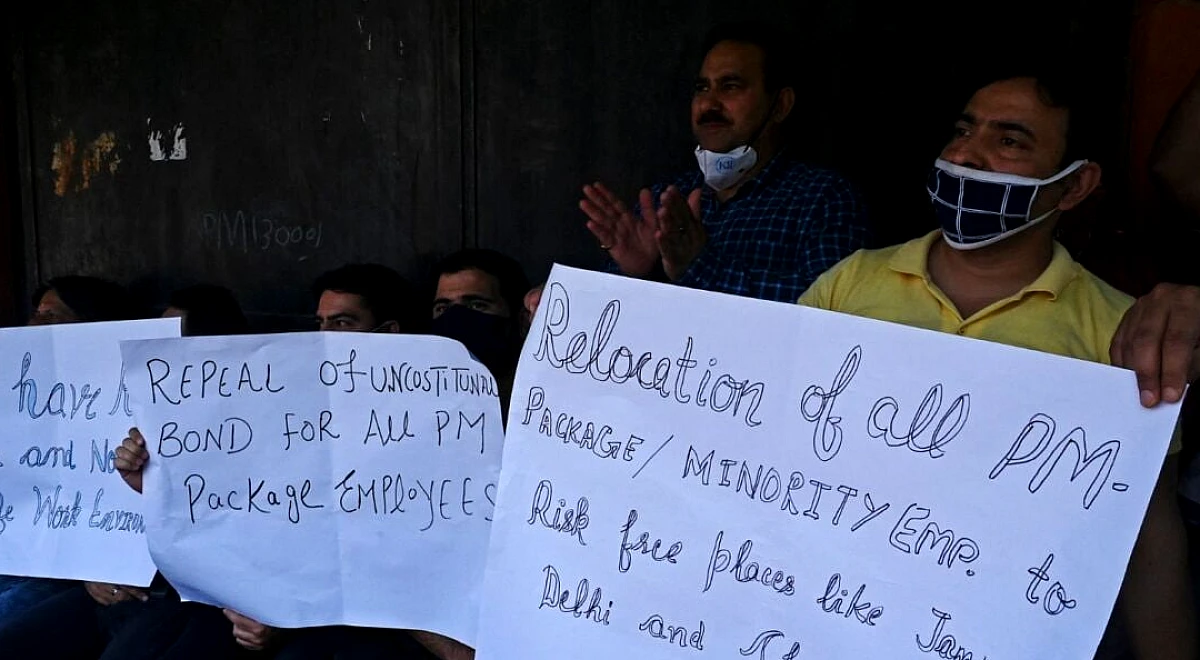 PM13000/
have
and No
Work Environ
REPEAL Of UNCOSTITUNAL
BOND FOR All PM
Package EMPLOYEES
Relocation of all PM-
PACKAGE/ MINORITY EMP. to
Risk free places like Jam
Delhi and